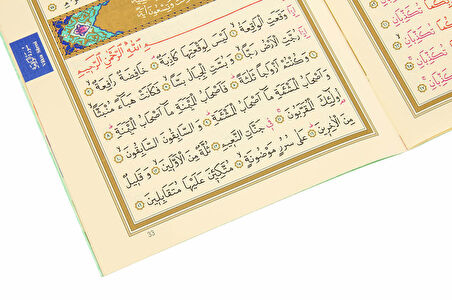 بِسْمِ اللّٰهِ الرَّحْمٰنِ الرَّحِيمِ
اِذَا وَقَعَتِ الْوَاقِعَةُ ۝ لَيْسَ لِوَقْعَتِهَا كَاذِبَةٌ ۝ خَافِضَةٌ رَافِعَةٌ ۝
اِذَا رُجَّتِ الْاَرْضُ رَجًّا ۝ وَ بُسَّتِ الْجِبَالُ بَسًّا ۝ فَكَانَتْ هَبَاءً مُنْبَثًّا ۝
وَ كُنْتُمْ اَزْوَاجًا ثَلٰثَةً ۝ فَاَصْحَابُ الْمَيْمَنَةِ مَا اَصْحَابُ الْمَيْمَنَةِ ۝
وَ اَصْحَابُ الْمَشْئَمَةِ مَا اَصْحَابُ الْمَشْئَمَةِ ۝ وَ السَّابِقُونَ السَّابِقُونَ ۝
اُولٰئِكَ الْمُقَرَّبُونَ ۝ فِى جَنَّاتِ النَّعِيمِ ۝ ثُلَّةٌ مِنَ الْاَوَّلِينَ ۝ وَ قَلِيلٌ
مِنَ الْاٰخِرِينَ ۝ عَلٰى سُرُرٍ مَوْضُونَةٍ ۝ مُتَّكِئِينَ عَلَيْهَا مُتَقَابِلِينَ ۝
33
تُكَذِّبَانِ
تُكَذِّبَانِ
تُكَذِّبَانِ